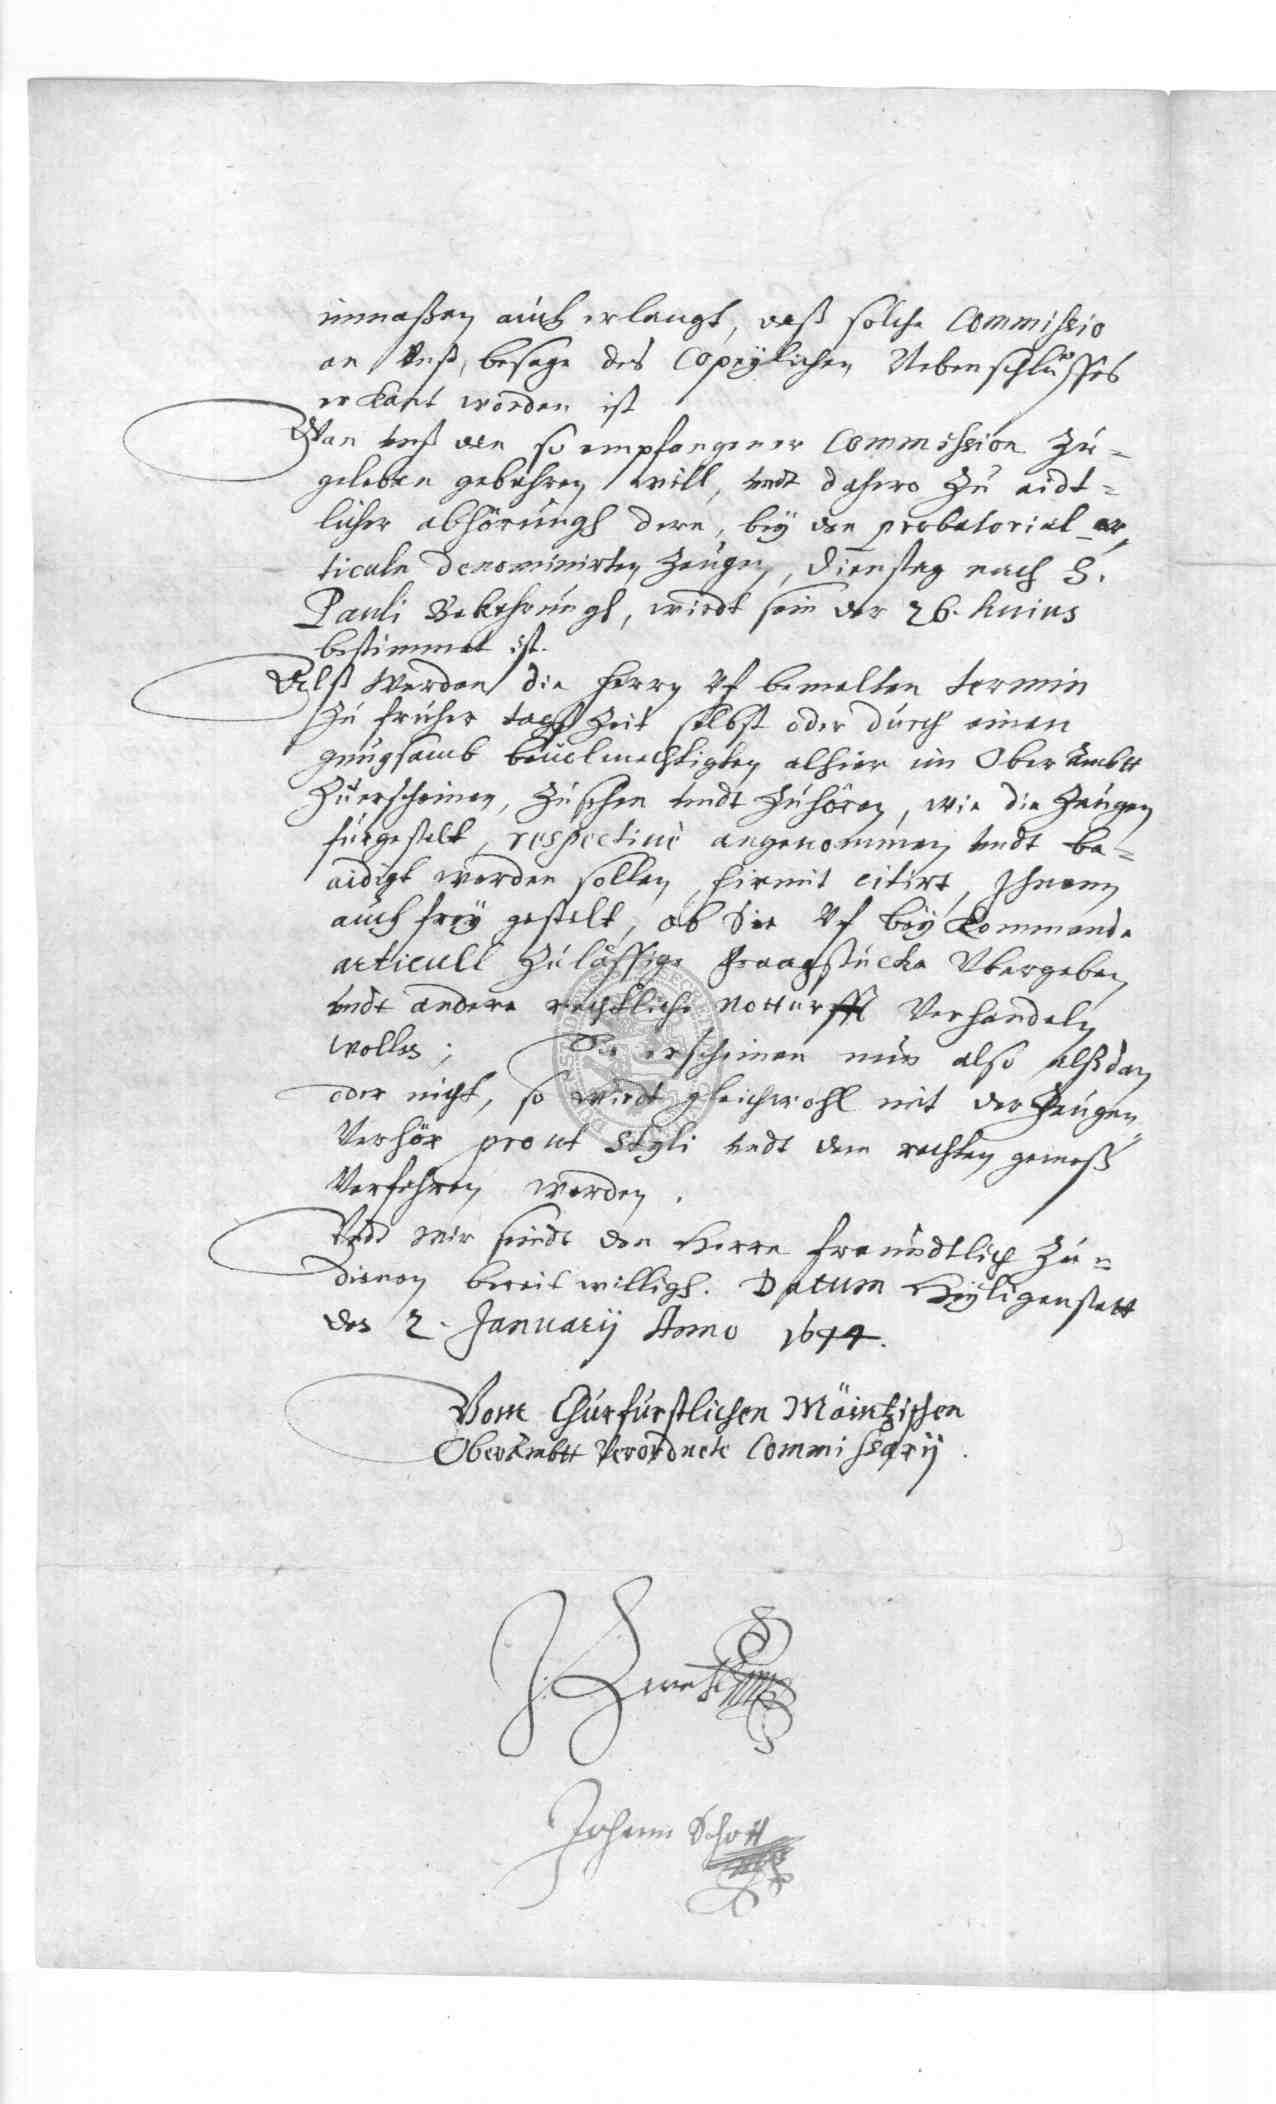 inmaßen auch erlangt, daß solche Commissio
an Unß, besage des Copeylichen Nebenschlusses
erkant worden ist
Wan unß den so empfangener Commission zu=
geleben gebühren will, undt dahero zu aidt=
licher abhörungh dere, bey den probatorial ar,
ticuln denominirten Zeugen, Dienstag nach S.
Pauli Bekehrungh, wirdt sein der 26. huius
bestimmet ist.
Alß werden die herrn Uf bemelten termin
zu früher tags Zeit selbst oder durch einen
gnugsamb beuelmechtigten alhier im OberAmbtt
Zuerscheinen, Zusehen undt Zuhören, wie die Zeugen
fürgestelt, respectiuè angenommen undt be=
aidigt werden sollen, hiermit citirt, Ihnenn
auch frey gestelt, ob Sie Uf bey kommende
articull Zulässige fraagstücke Ubergeben
undt andere rechtliche notturfft Verhandeln
wolles; Sie erscheinen nun also alßdan
oder nicht, so wirdt gleichwohl mit der Zeugen=
Verhör prout styli undt dem rechten gemeß
Verfahren werden.
Undt Wir seindt den Herrn freundtlich Zu=
dienen bereitwilligh. Datum Heyligenstatt
den 2. Januarij Anno 1644.
Vom Churfürstlichen Mäintzischen
OberAmbtt Verordnete Commissarij.
Johann Schott